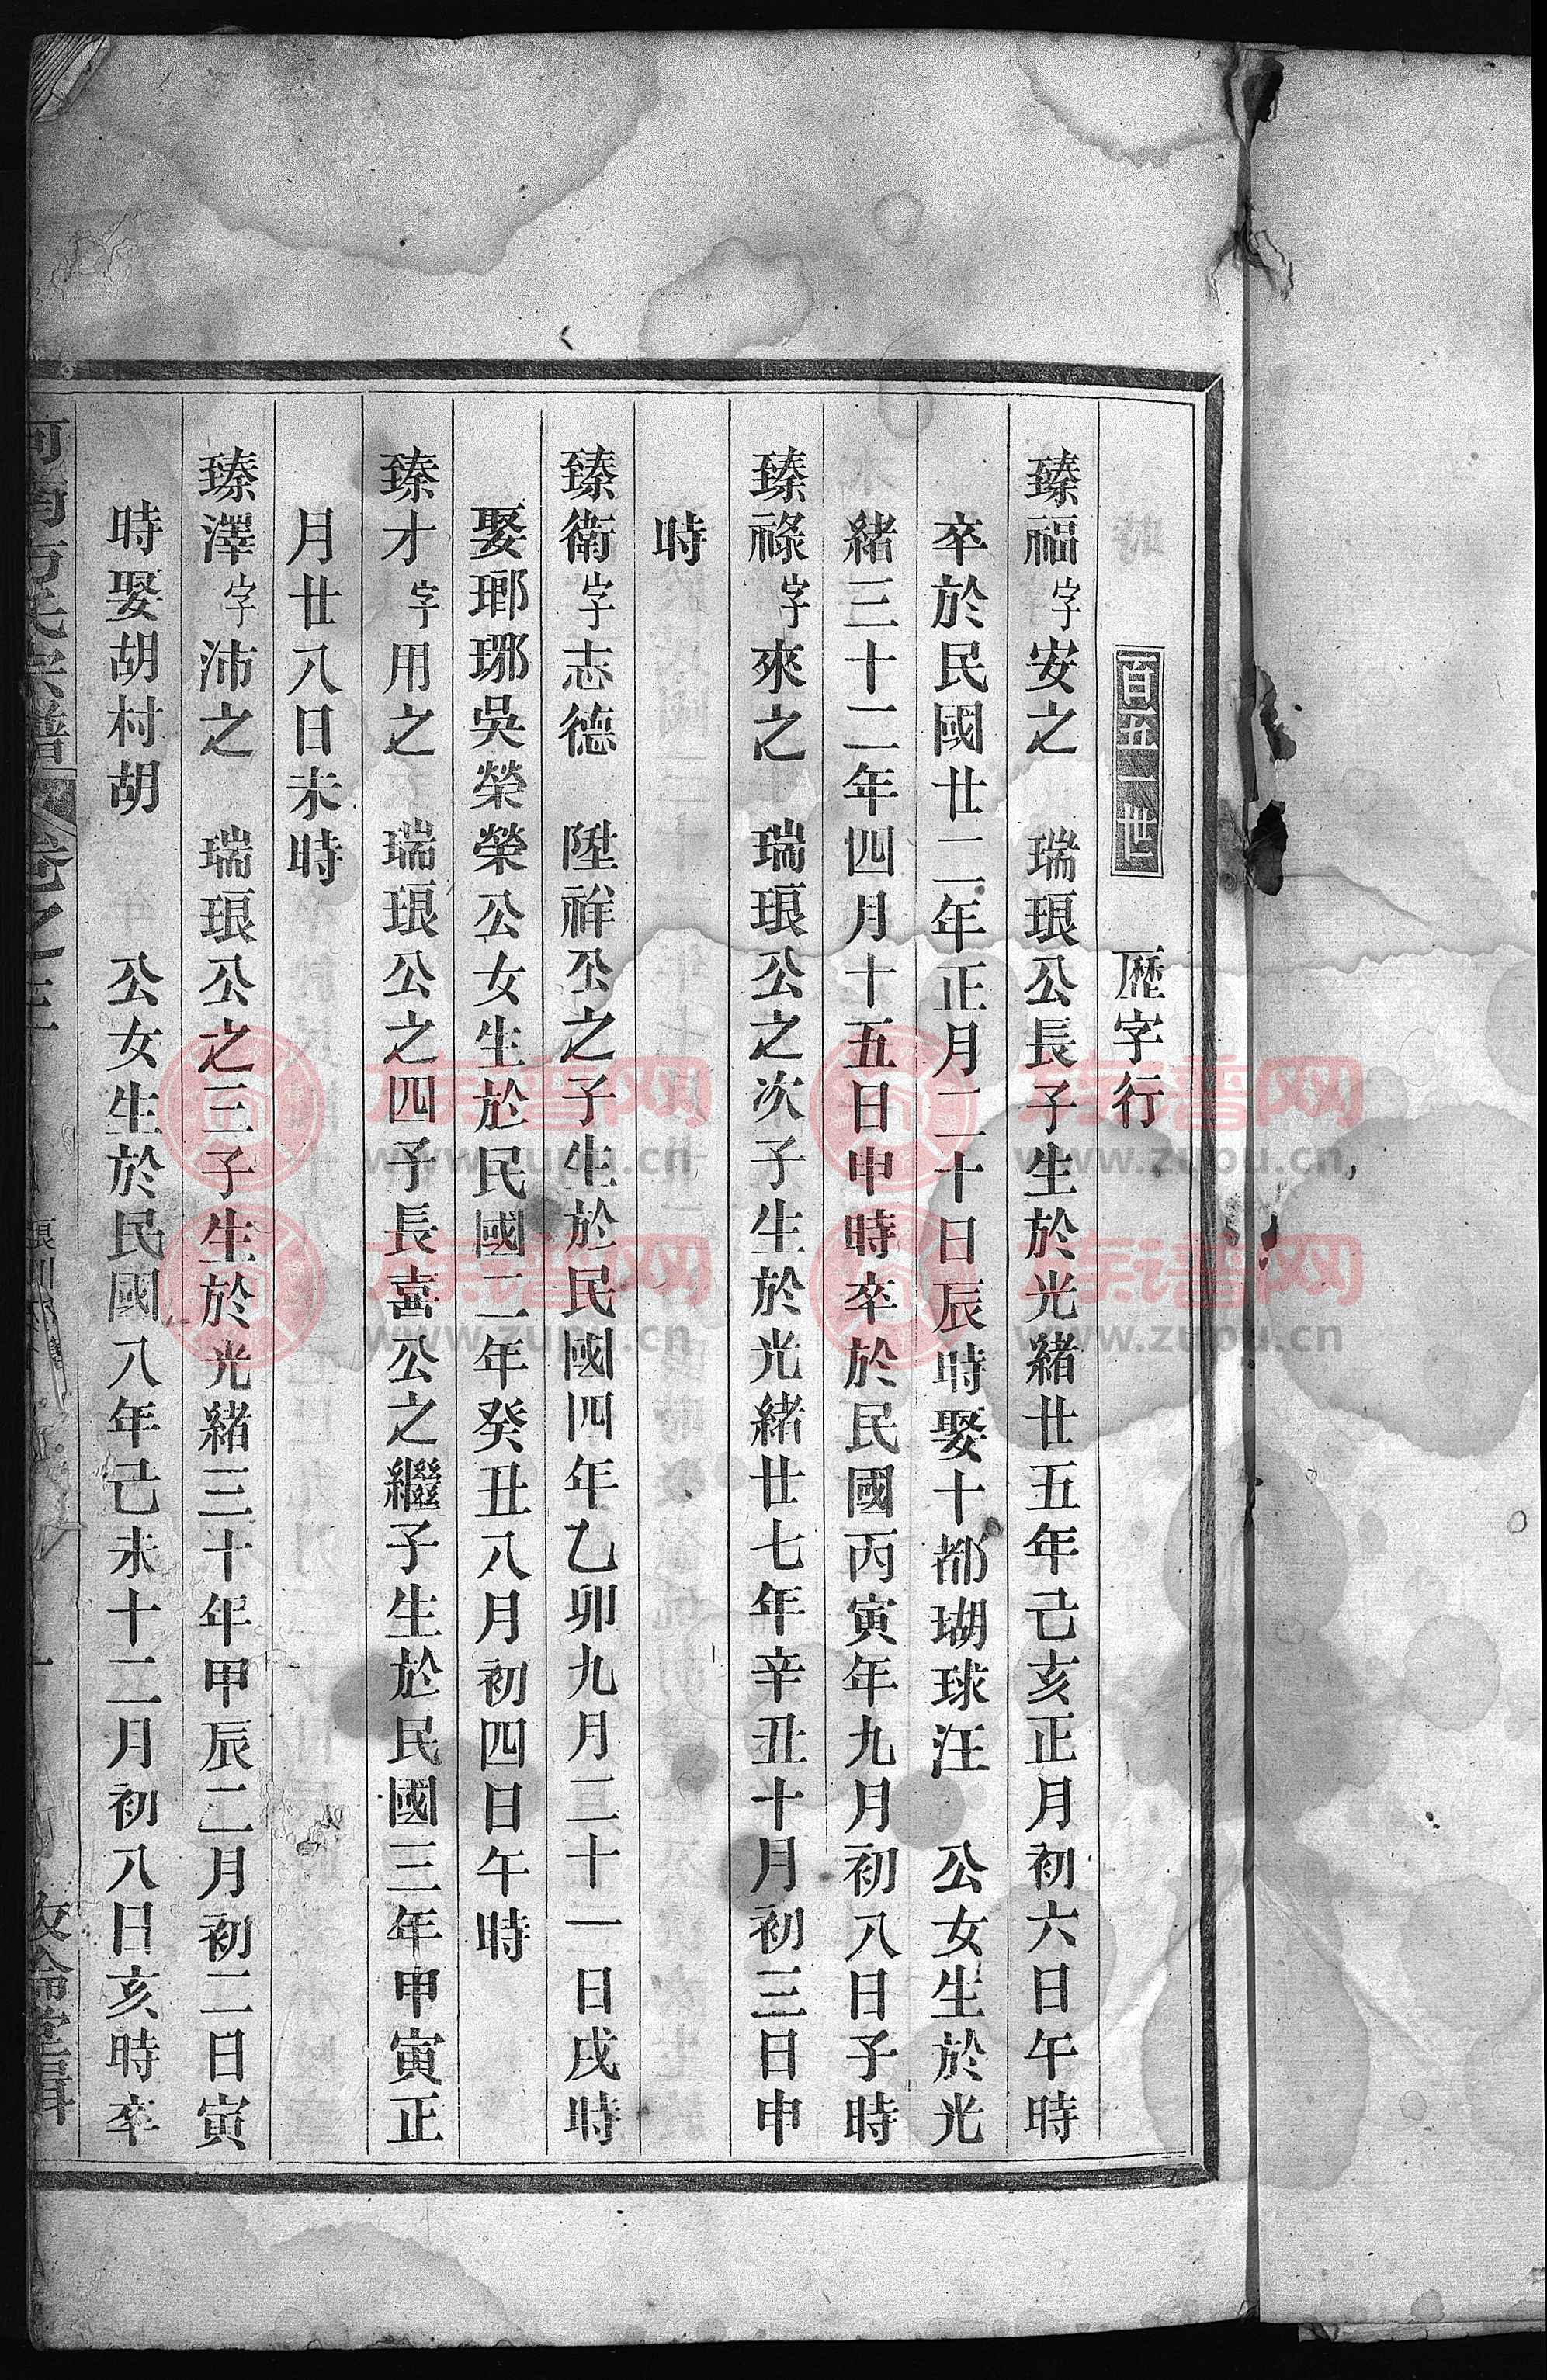 百五一世　歷字行
臻福字安之　瑞琅公長子生於光緒廿五年己亥正月初六日午時
卒於民國廿二年正月二十日辰時娶十都瑚球汪　公女生於光
緒三十二年四月十五日申時卒於民國丙寅年九月初八日子時
臻祿字來之　瑞琅公之次子生於光緒廿七年辛丑十月初三日申
時
臻衛字志德　陞祥公之子生於民國四年乙卯九月二十一日戌時
娶瑯琊吳榮榮公女生於民國二年癸丑八月初四日午時
臻才字用之　瑞琅公之四子長喜公之繼子生於民國三年甲寅正
月廿八日未時
臻澤字沛之　瑞琅公之三子生於光緒三十年甲辰二月初二日寅
時娶胡村胡　公女生於民國八年己未十二月初八日亥時卒
河南方氏宗譜　卷之三
敦倫堂輯
族谱网
www.zupu.cn
族谱网
www.zupu.cn
族谱网
www.zupu.cn
族谱网
www.zupu.cn